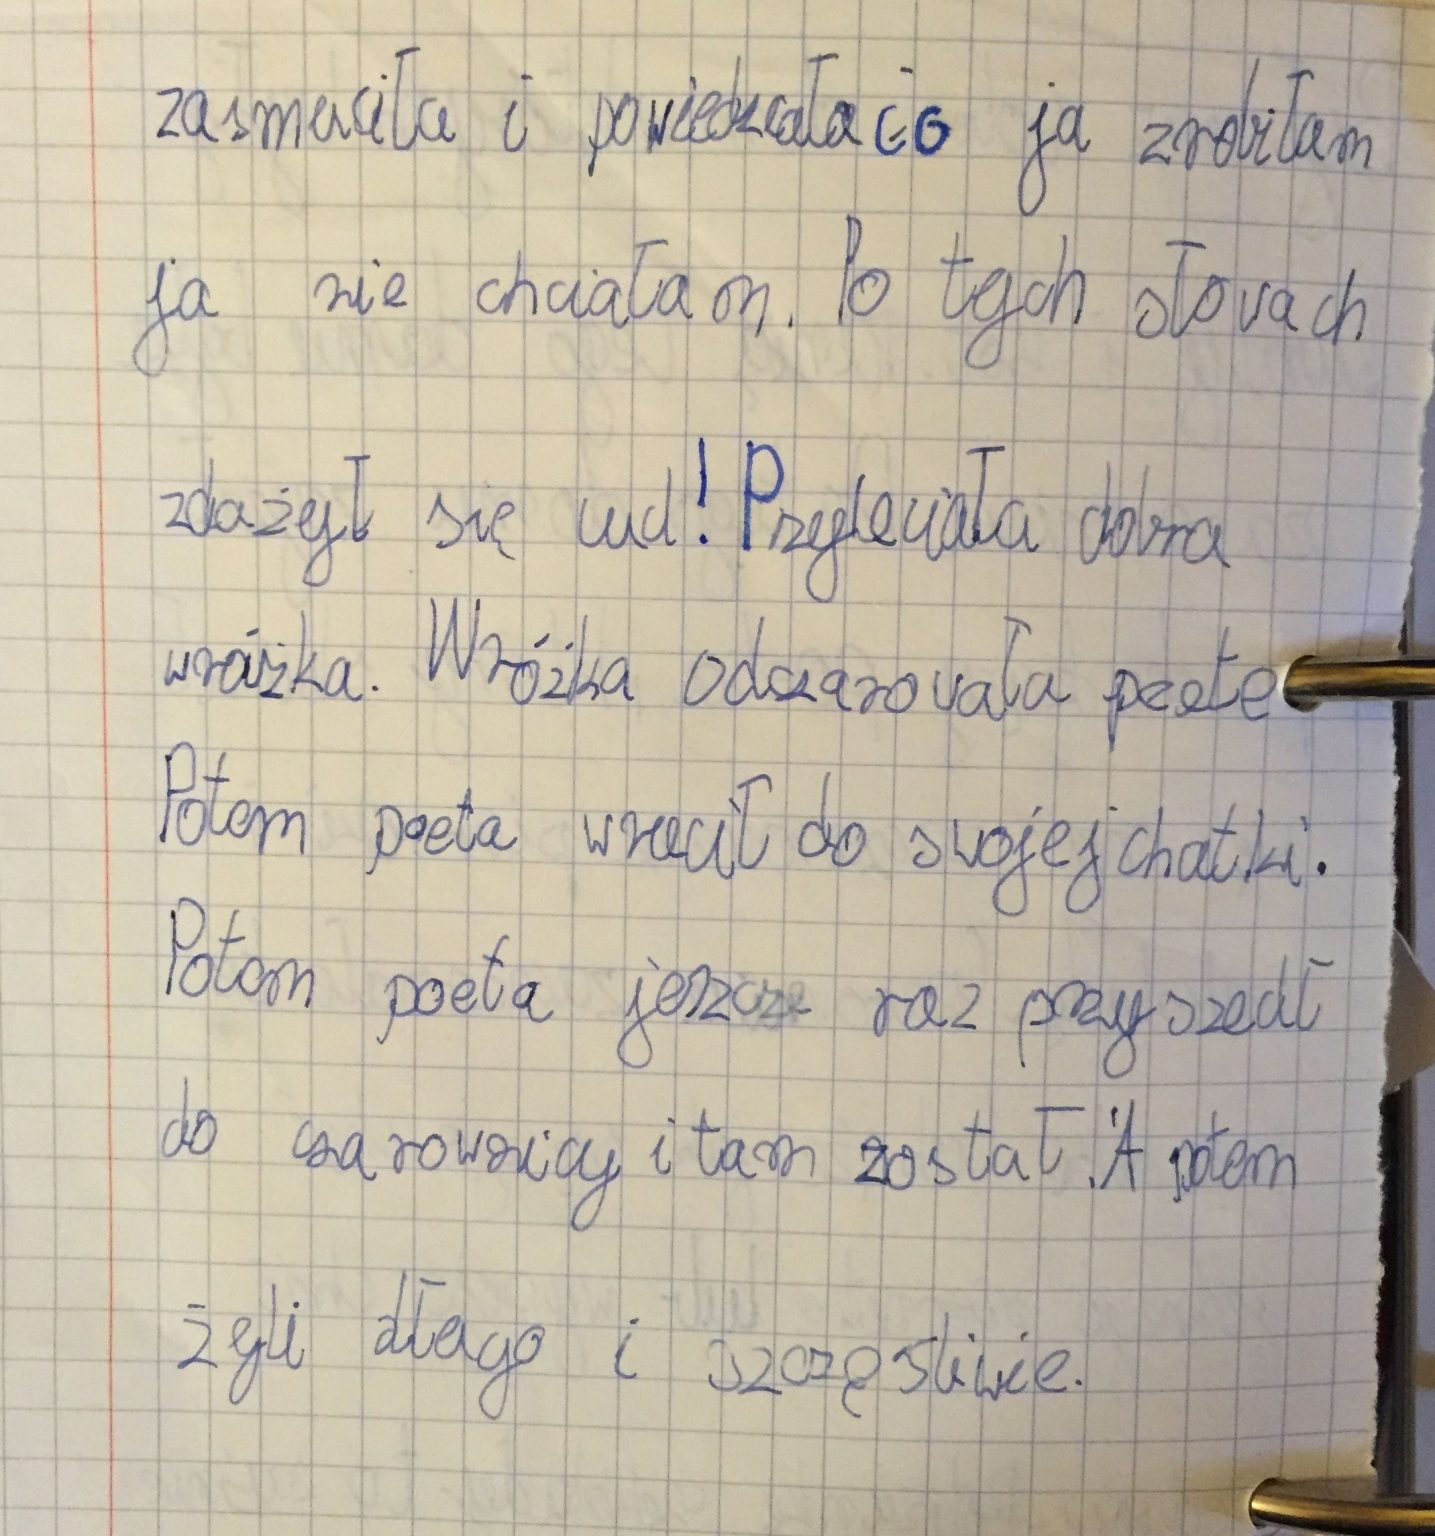 zasmuciła i powiedziała co ja zrobiłam
ja nie chciałam. Po tych słovach
zdażył się cud! Przyleciała dobra
wróżka. Wróżka odczarovała poete
Potem poeta wrucił do swojej chatki.
Potem poeta jeszcze raz przyszedł
do czarownicy i tam został. A potem
żyli długo i szczęśliwie.